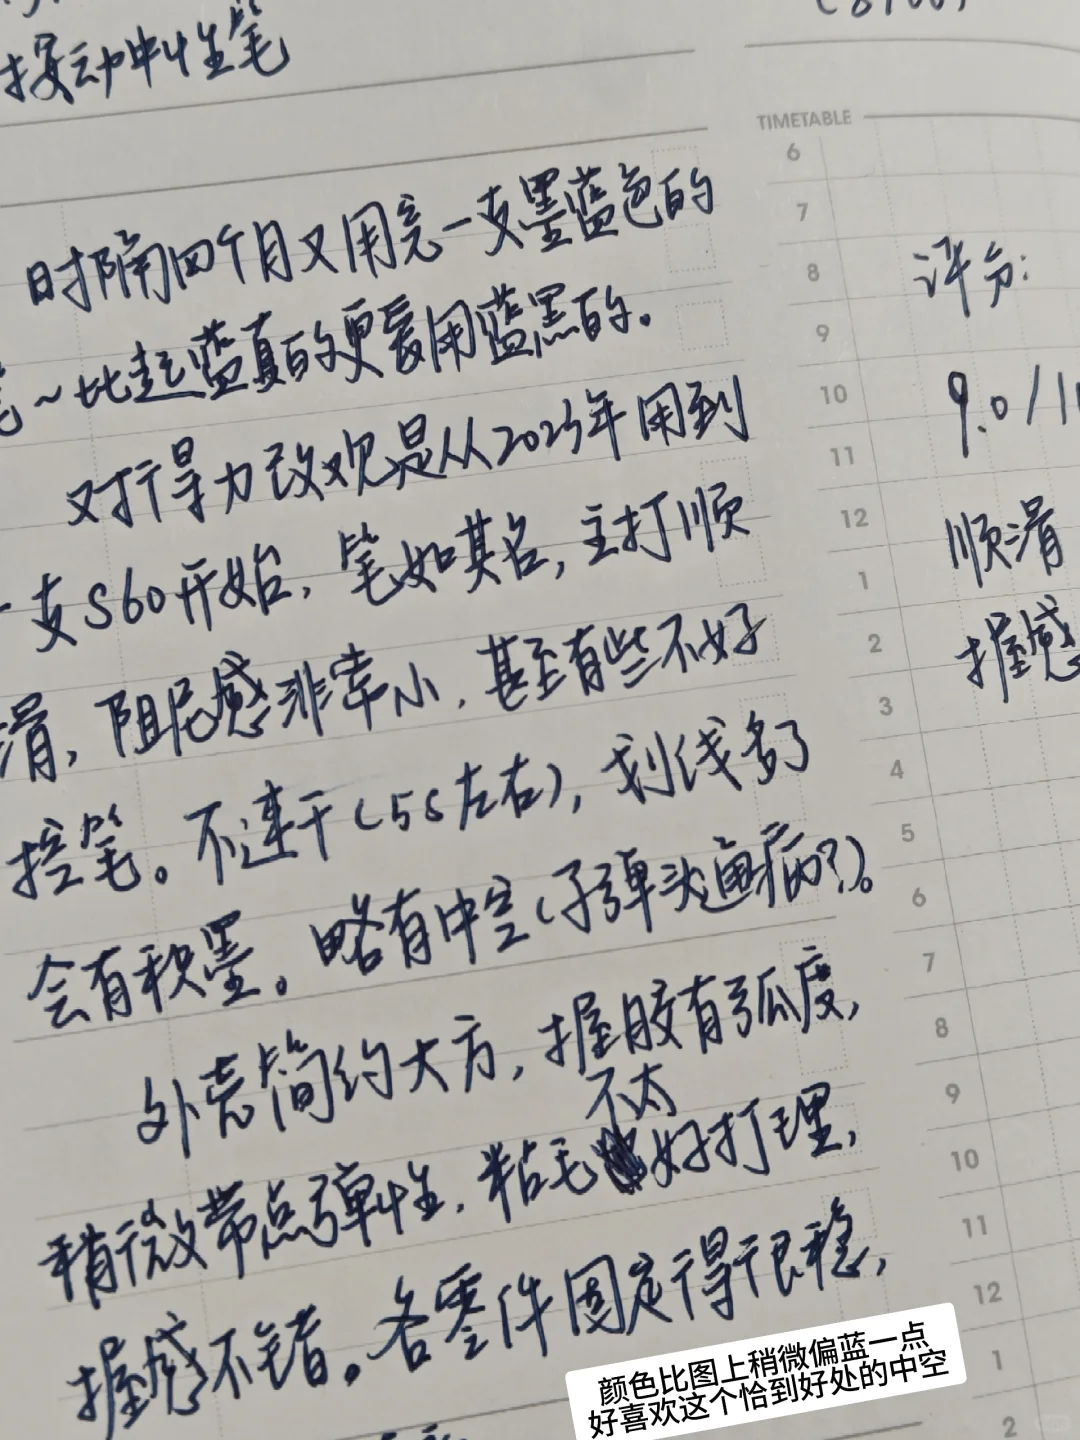 按动中性笔
TIMETABLE
时隔四个月又用完一支墨蓝色的
笔~比起蓝真的更爱用蓝黑的。
对于得力改观是从2023年用到
一支S60开始,笔如其名,主打顺
滑,阻尼感非常小,甚至有些不好
控笔。不速干(5s左右),划线多了
会有积墨。略有中空(子弹头通病?)。
外壳简约大方,握胶有弧度,
不太
稍微带点弹性,粘毛好打理,
握感不错。各零件固定得很稳,
6
7
8
9
10
11
12
1
2
3
4
5
6
7
8
9
10
11
12
1
2
评分:
9.0/1
顺滑
握感
颜色比图上稍微偏蓝一点
好喜欢这个恰到好处的中空